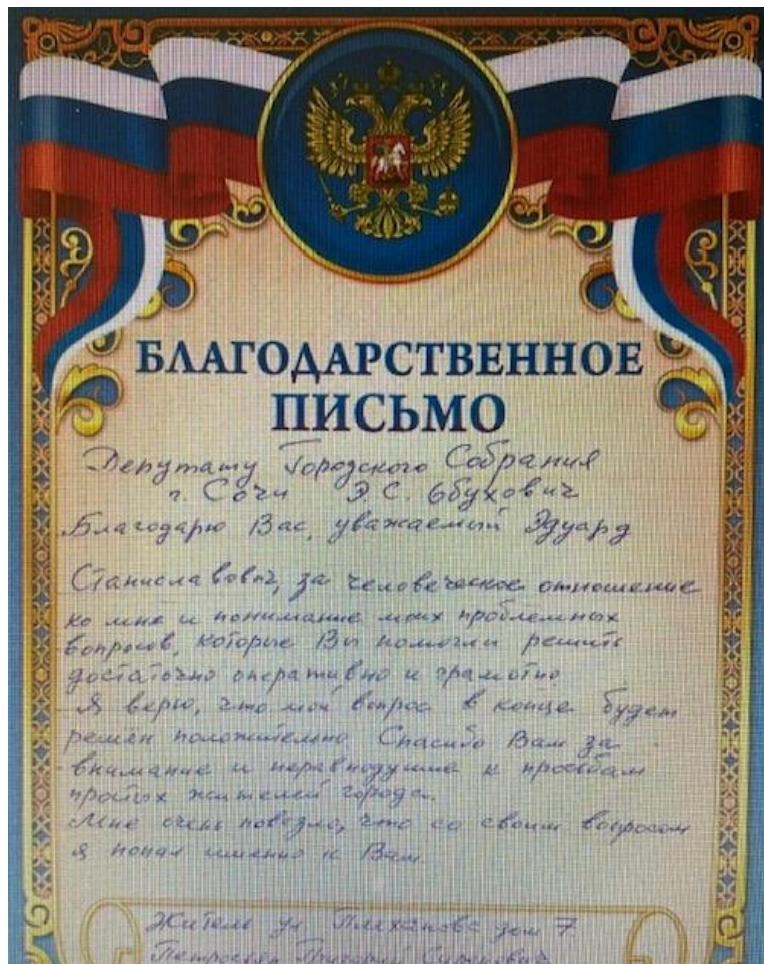 БЛАГОДАРСТВЕННОЕ
ПИСЬМО
Депутату Городского Собрания
г. Сочи Э.С. Обухович
Благодарю Вас, уважаемый Эдуард
Станиславович, за человеческое отношение
ко мне и понимание моих проблемных
вопросов, которые Вы помогли решить
достаточно оперативно и грамотно.
Я верю, что мой вопрос в конце будет
решен положительно. Спасибо Вам за
внимание и неравнодушие к просьбам
простых жителей города.
Мне очень повезло, что со своим вопросом
я попал именно к Вам.
Житель ул Плеханова дом 7
Петросян Григорий